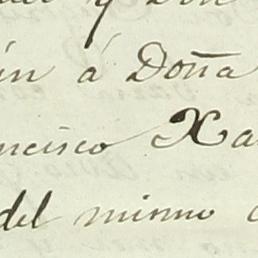 y Don
ín á Doña
ncisco Xa
del mismo